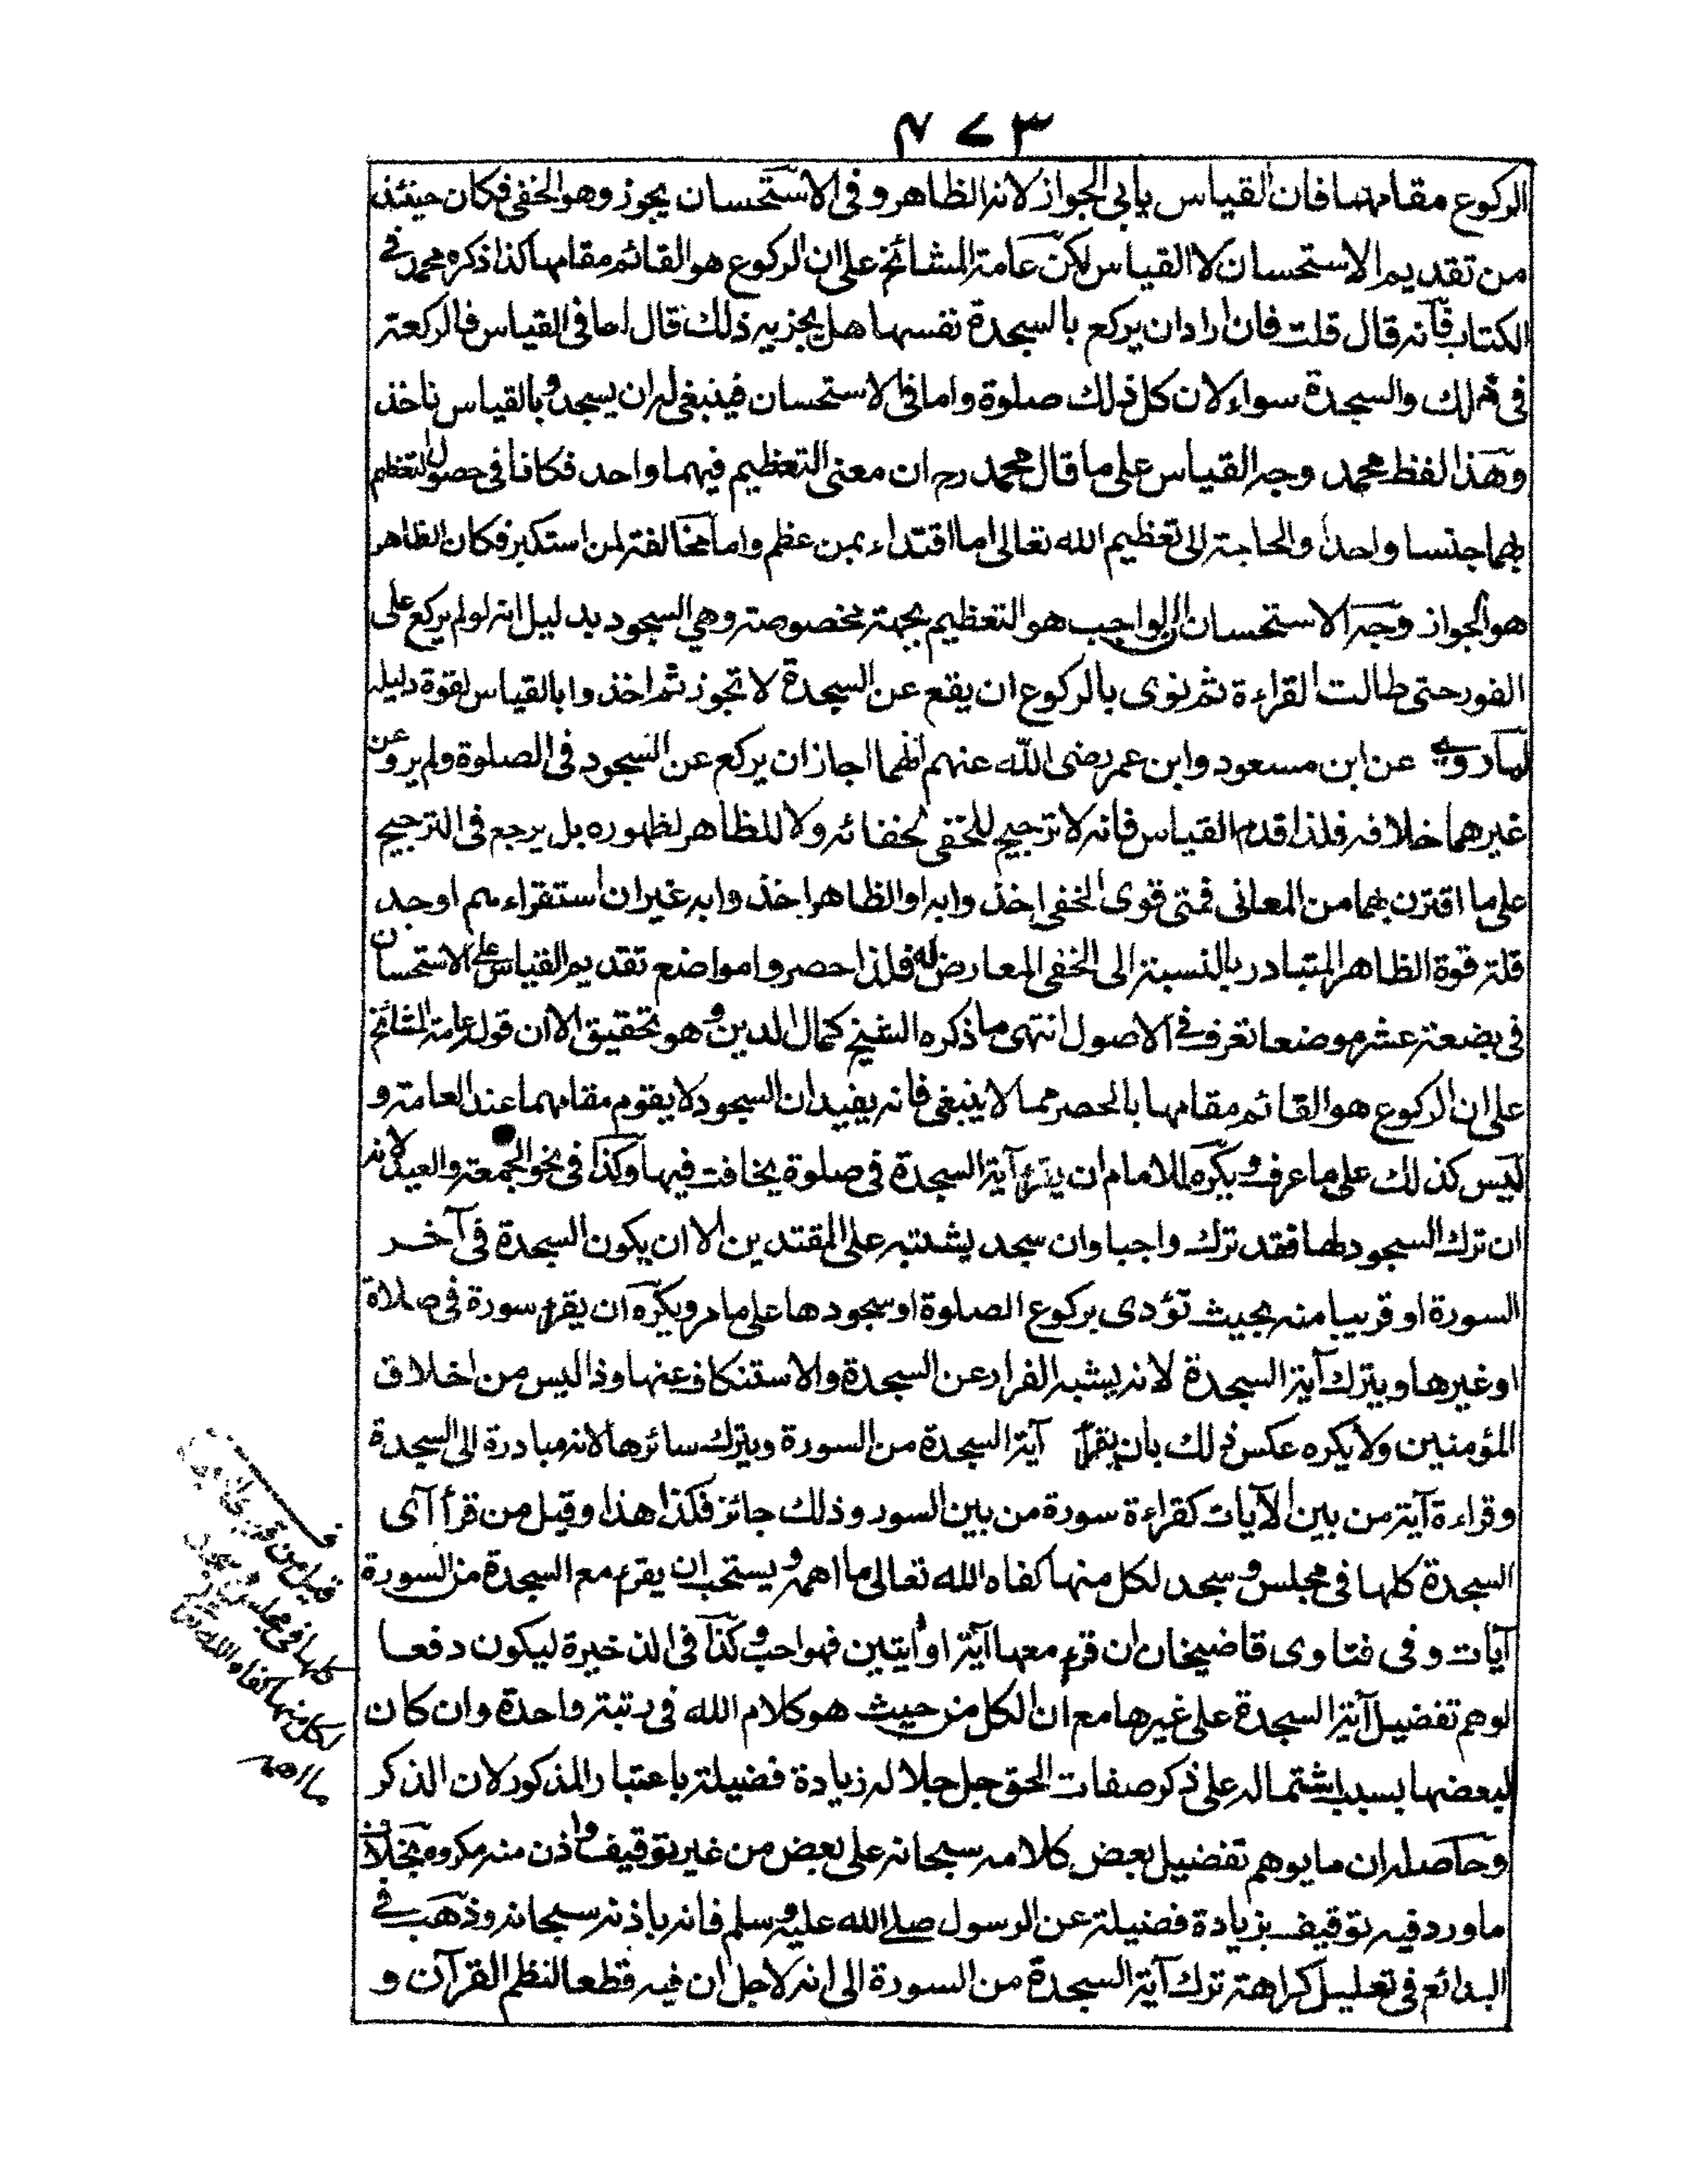 ٤٧٣
الركوع مقامها فان القياس يابى الجواز لانه الظاهر وفى الاستحسان يجوز وهو الخفى فكان حينئذ
من تقديم الاستحسان لا القياس لكن عامة المشائخ على ان الركوع هو القائم مقامها كذا ذكره محمد فى
الكتاب فانه قال قلت فان اراد ان يركع بالسجدة نفسها هل يجزيه ذلك قال اما فى القياس فالركعة
فى ذلك والسجدة سواء لان كل ذلك صلوة واما فى الاستحسان فينبغى له ان يسجد وبالقياس ناخذ
وهذا لفظ محمد وجه القياس على ما قال محمد رح ان معنى التعظيم فيهما واحد فكانا فى حصول التعظيم
بهما جنسا واحدا والحاجة الى تعظيم الله تعالى اما اقتداء بمن عظم واما مخالفة لمن استكبر فكان الظاهر
هو الجواز وجه الاستحسان ان الواجب هو التعظيم بجهة مخصوصة وهى السجود بدليل انه لو لم يركع على
الفور حتى طالت القراءة ثم نوى بالركوع ان يقع عن السجدة لا تجوز ثم اخذوا بالقياس لقوة دليله
لما روى عن ابن مسعود وابن عمر رضى الله عنهم انهما اجازا ان يركع عن السجود فى الصلوة ولم يرو عن
غيرهما خلافه فلذا قدم القياس فانه لا ترجيح للخفى لخفائه ولا للظاهر لظهوره بل يرجع فى الترجيح
على ما اقترن بهما من المعانى فمتى قوى الخفى اخذوا به او الظاهر اخذوا به غير ان استقراءهم اوجد
قلة قوة الظاهر المتبادر بالنسبة الى الخفى المعارض له فلذا حصروا مواضع تقديم القياس على الاستحسان
فى بضعة عشر موضعا تعرف فى الاصول انتهى ما ذكره الشيخ كمال الدين وهو تحقيق الا ان قوله عامة المشائخ
على ان الركوع هو القائم مقامها بالحصر مما لا ينبغى فانه يفيد ان السجود لا يقوم مقامهما عند العامة و
ليس كذلك على ما عرف ويكره للامام ان يقرأ آية السجدة فى صلوة يخافت فيها وكذا فى نحو الجمعة والعيد لانه
ان ترك السجود لها فقد ترك واجبا وان سجد يشتبه على المقتدين الا ان يكون السجدة فى آخر
السورة او قريبا منه بحيث تؤدى بركوع الصلوة او سجودها على ما مر ويكره ان يقرء سورة فى صلاة
او غيرها ويترك آية السجدة لانه يشبه الفرار عن السجدة والاستنكاف عنها وذا ليس من اخلاق
المؤمنين ولا يكره عكس ذلك بان يقرأ آية السجدة من السورة ويترك سائرها لانه مبادرة الى السجدة
وقراءة آية من بين الآيات كقراءة سورة من بين السور وذلك جائز فكذا هذا وقيل من قرأ آى
السجدة كلها فى مجلس وسجد لكل منها كفاه الله تعالى ما اهمه ويستحب ان يقرء مع السجدة من السورة
آيات وفى فتاوى قاضيخان ان قرء معها آية او آيتين فهو احب وكذا فى الذخيرة ليكون دفعا
لوهم تفضيل آية السجدة على غيرها مع ان الكل من حيث هو كلام الله فى رتبة واحدة وان كان
لبعضها بسبب اشتماله على ذكر صفات الحق جل جلاله زيادة فضيلة باعتبار المذكور لان الذكر
وحاصله ان ما يوهم تفضيل بعض كلامه سبحانه على بعض من غير توقيف واذن منه مكروه بخلاف
ما ورد فيه توقيف بزيادة فضيلة عن الرسول صلى الله عليه وسلم فانه باذنه سبحانه وذهب فى
البدائع فى تعليل كراهة ترك آية السجدة من السورة الى انه لاجل ان فيه قطعا لنظم القرآن و
قيل من
كلها فى مجلس
لكل منها كفاه الله
ما اهمه